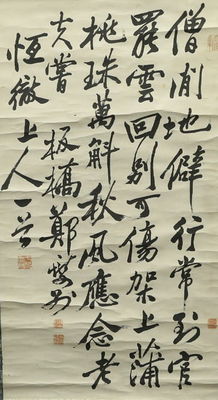 僧閒地僻行常到官
罷雲回別可傷架上蒲
桃珠萬斛秋風應念老
夫嘗 板橋鄭燮
恆徹上人一笑